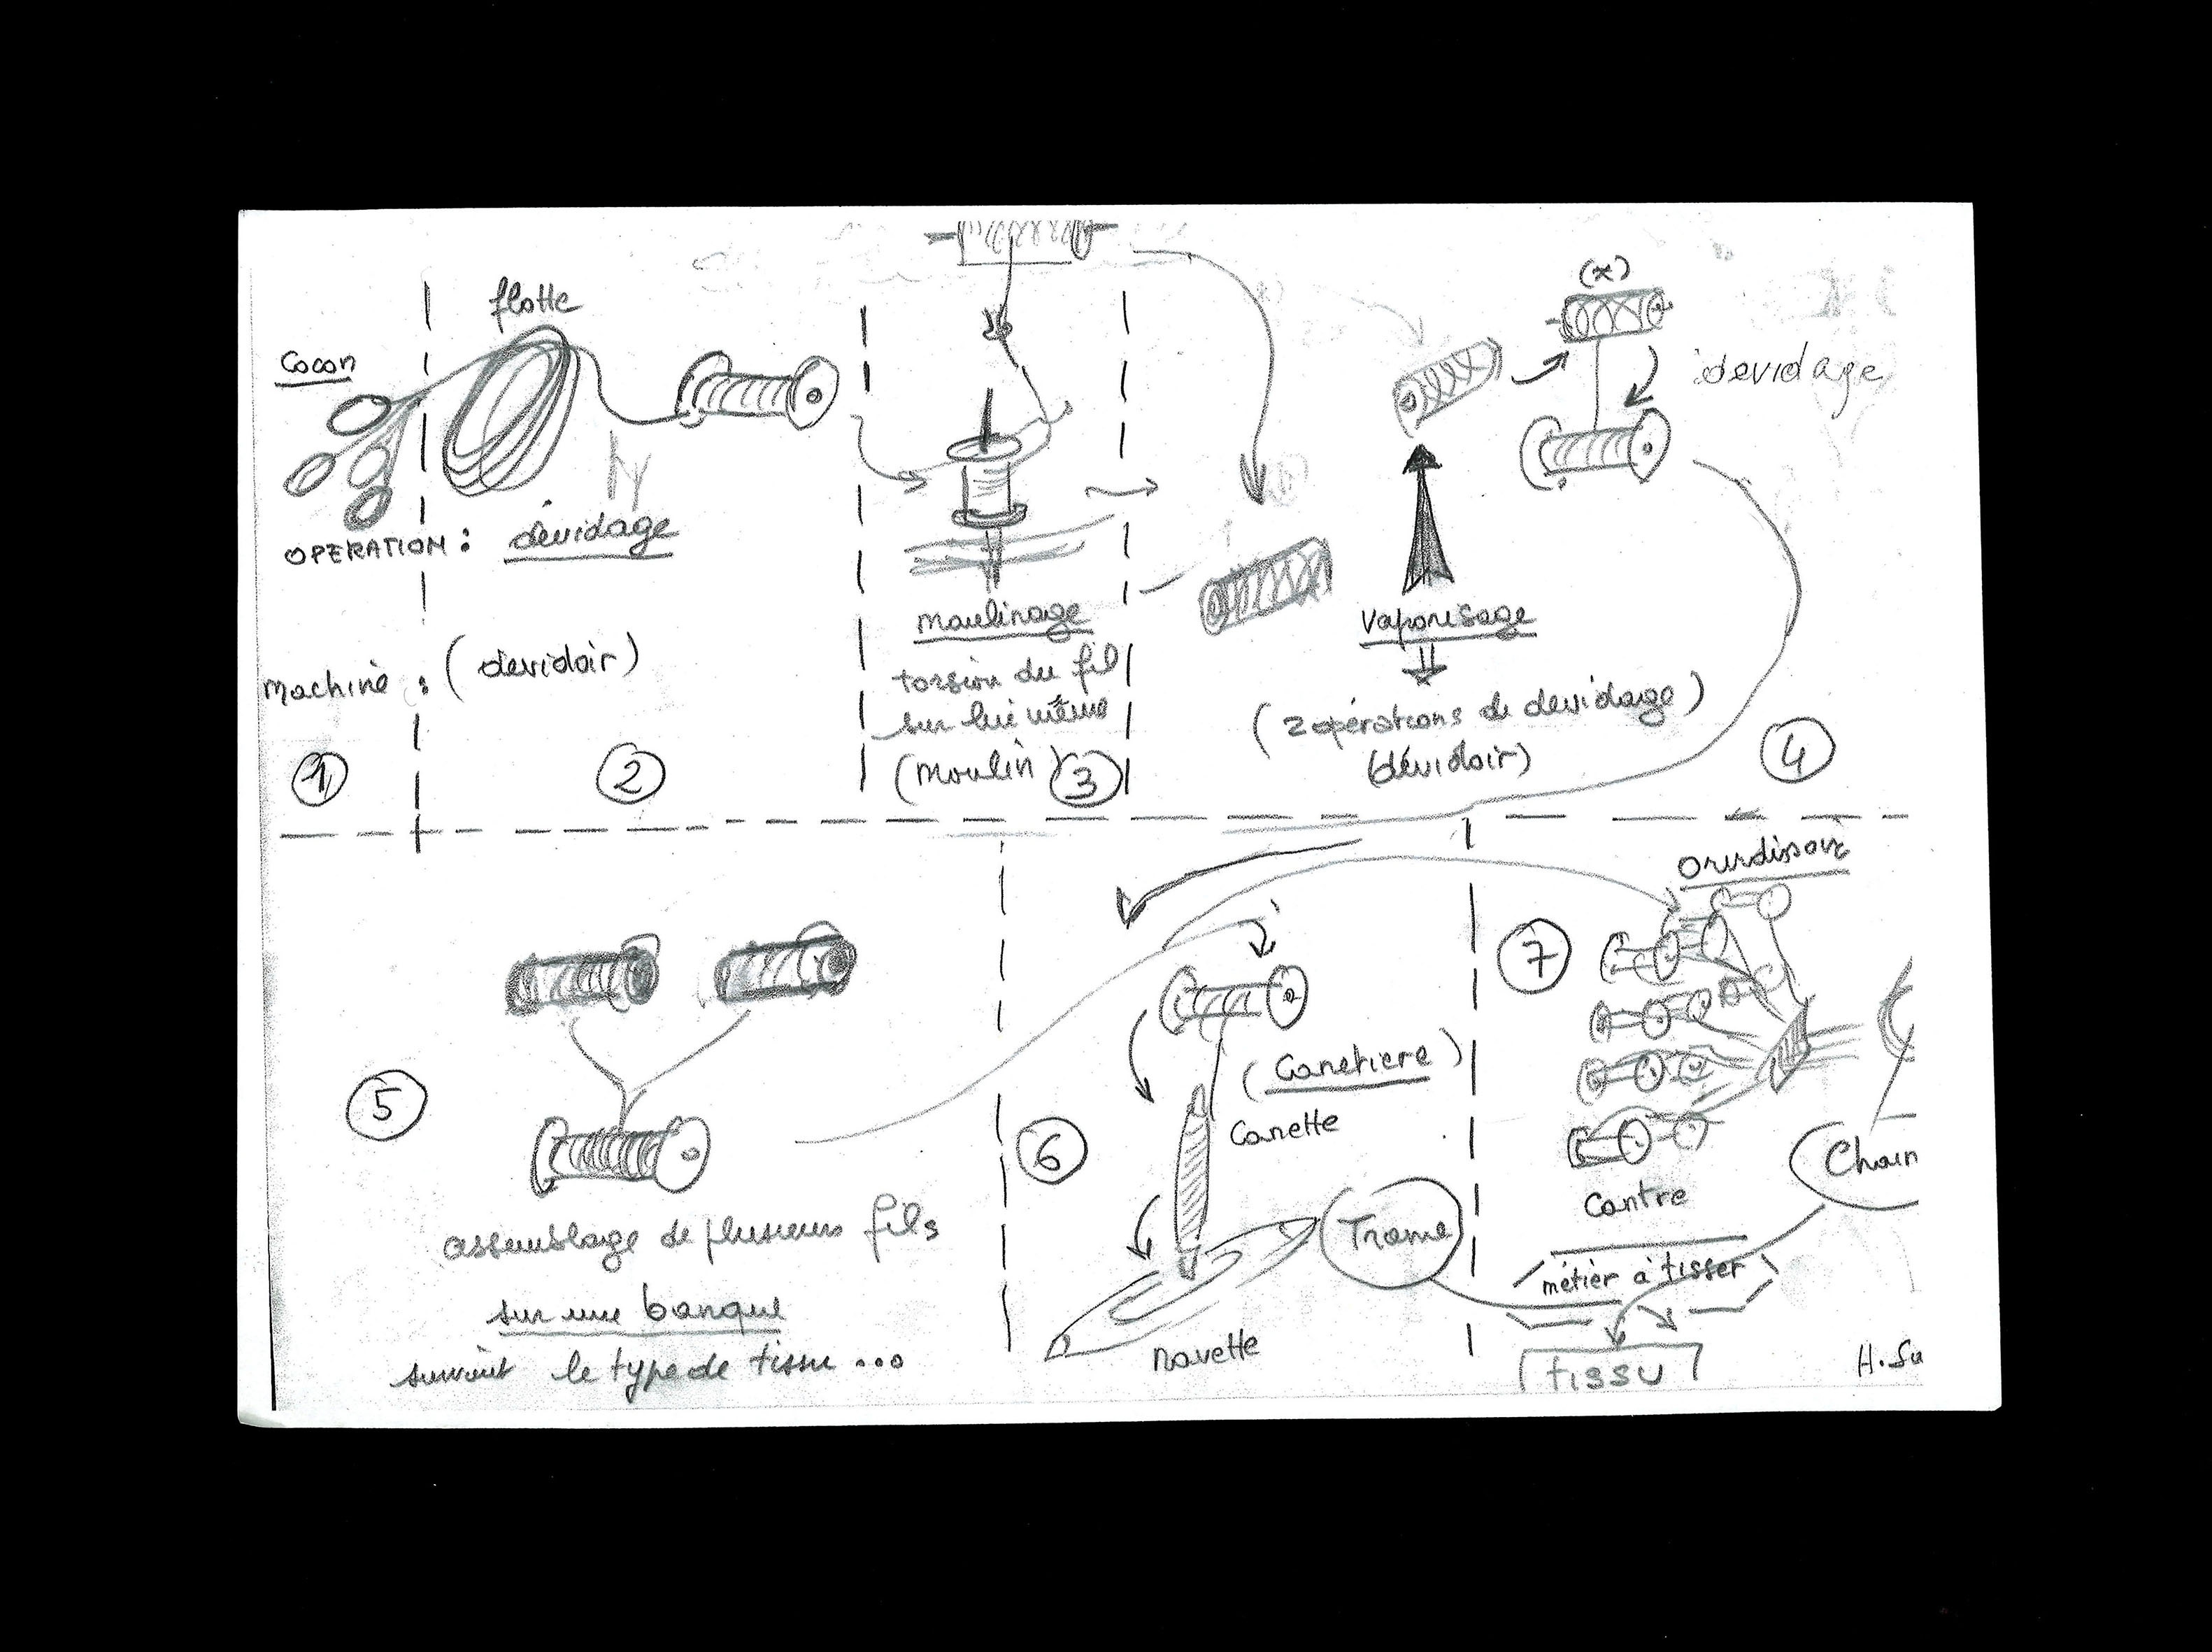 flotte
Cocon
OPERATION : dévidage
Machine : (devidoir)
1
2
moulinage
torsion du fil
sur lui même
(Moulin)
3
(x)
devidage
vaporisage
(2 opérations de devidage)
(dévidoir)
4
5
assemblage de plusieurs fils
sur une banque
suivant le type de tissu ...
6
(Canetiere)
Canette
Trame
navette
7
Ourdissoir
Chain
Cantre
métier à tisser
tissu
H. Su